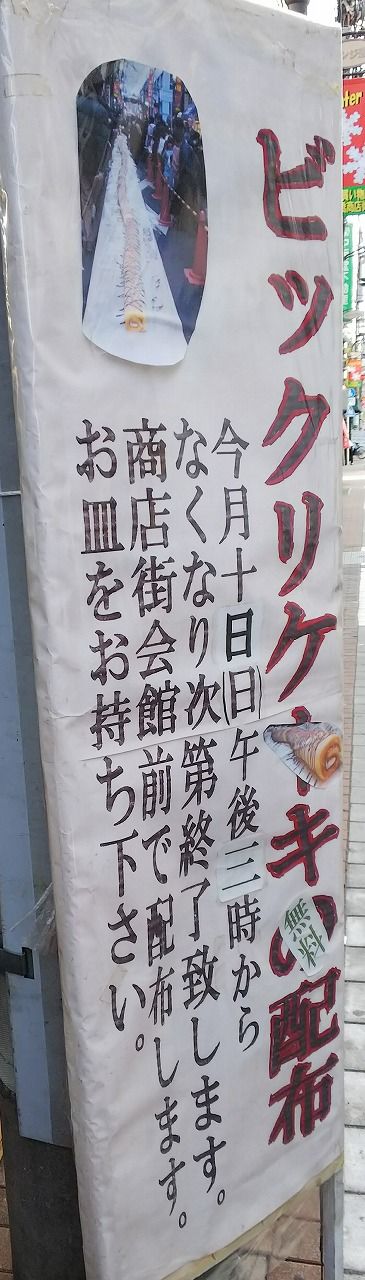 ビックリケーキの配布
無料
今月十日(日)午後三時から
なくなり次第終了致します。
商店街会館前で配布します。
お皿をお持ち下さい。